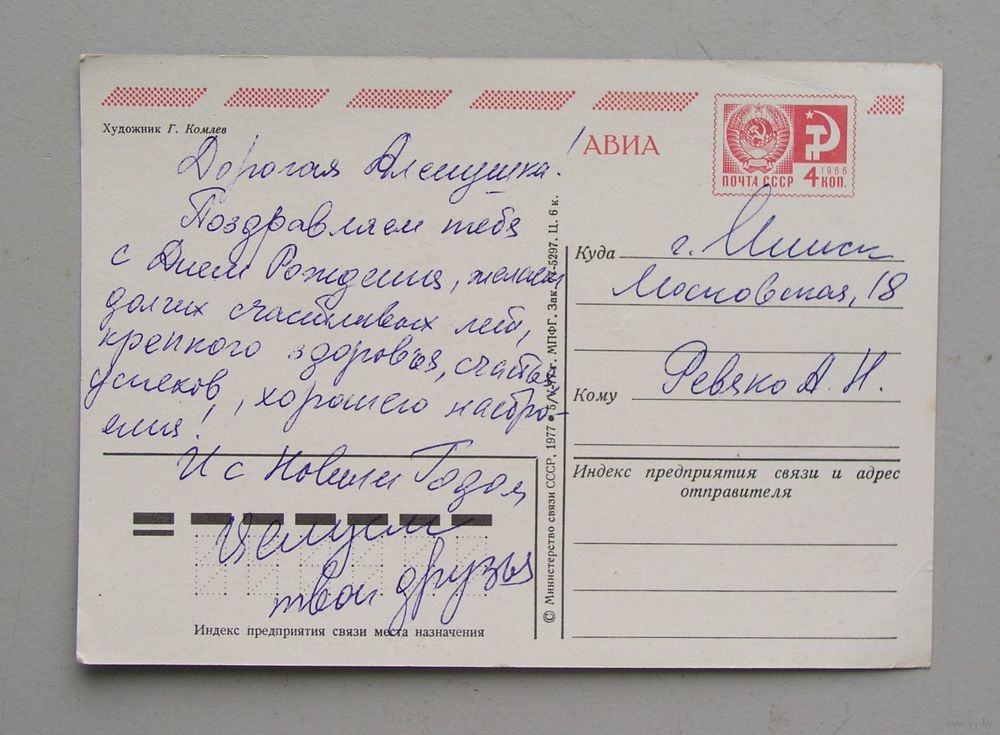 Художник Г. Комлев
АВИА
ПОЧТА СССР 4 1966 КОП.
Дорогая Алёнушка!
Поздравляем тебя
с Днём Рождения, желаем
долгих счастливых лет,
крепкого здоровья, счастья,
успехов, хорошего настро-
ения!
И с Новым Годом
Целуем
твои друзья
Индекс предприятия связи места назначения
© Министерство связи СССР, 1977 • 5/V-77 г. МПФГ. Зак. 77-5297. Ц. 6 к.
Куда г. Минск
Московская, 18
Кому Ревяко А. Н.
Индекс предприятия связи и адрес
отправителя
www.ay.by